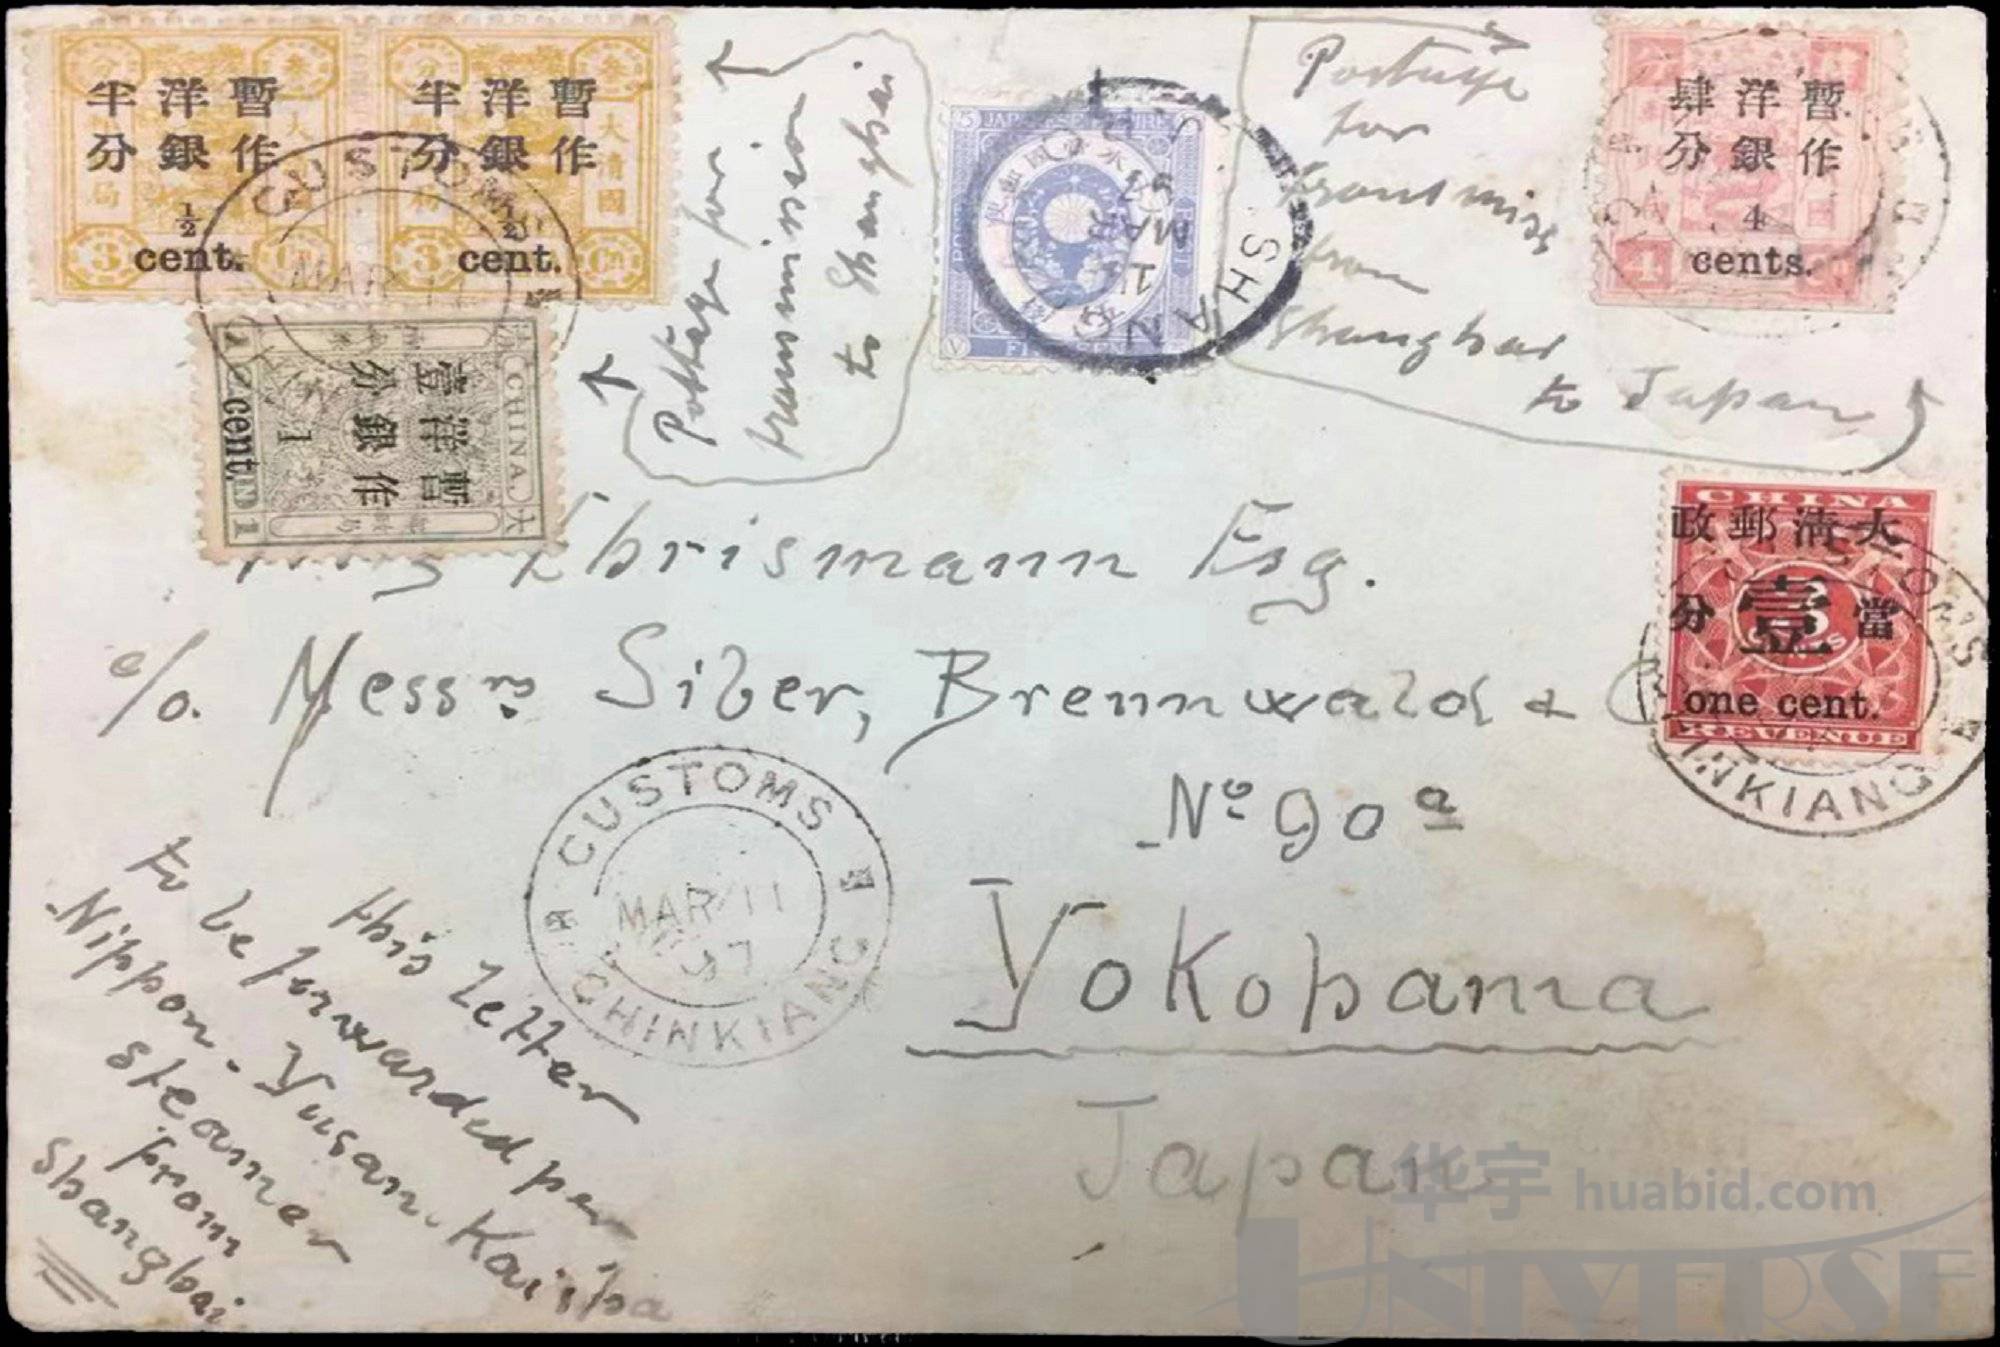 暫作洋銀半分
1/2
cent.
3
暫作洋銀半分
1/2
cent.
3
CHINA
大
暫作洋銀壹分
1
cent.
CUSTOMS
MAR 11
Postage for
transmission
to Shanghai
V
SHANG
14
MAR
97
Postage
for
from
Shanghai
to Japan
暫作洋銀肆分
4
cents.
CHINA
大清郵政
當壹分
one cent.
REVENUE
CUSTOMS
CHINKIANG
Ehrismann Esq.
c/o. Messrs Siber, Brennwald &
No 90 a
Yokohama
Japan
CUSTOMS
MAR 11
97
CHINKIANG
this letter
to be forwarded per
Nippon-Yusan-Kaisha
steamer
from
Shanghai
华宇 huabid.com
UNIVERSE